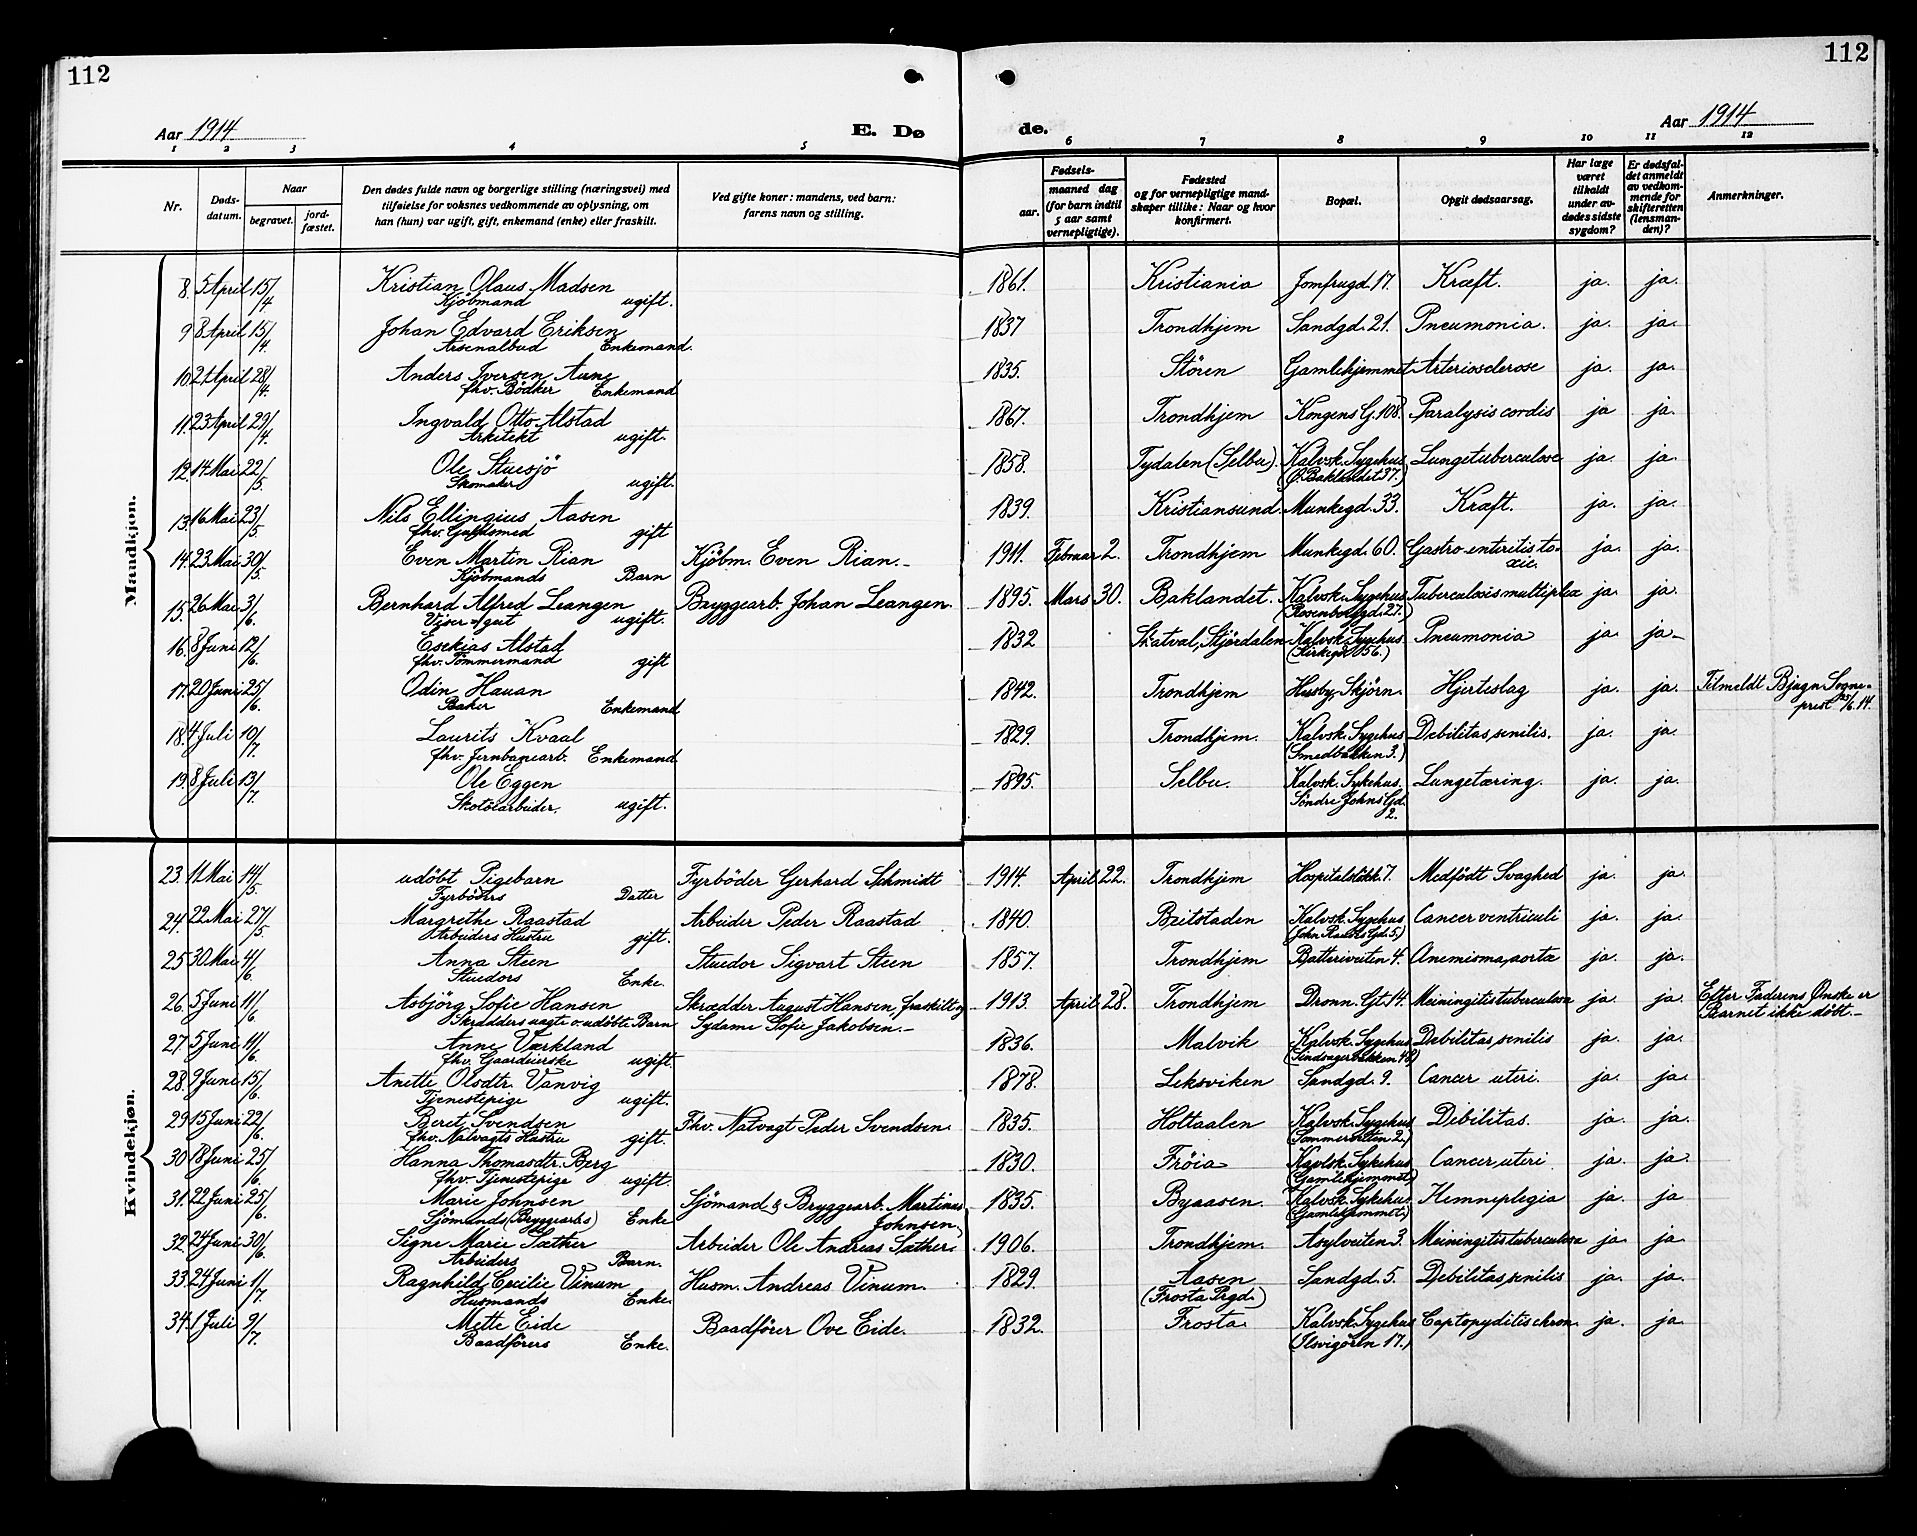 112
112
Aar 1914
E. Dø
de.
Aar 1914
1 2 3 4 5 6 7 8 9 10 11 12
Nr.
Døds-datum.
Naar
begravet.
jord-fæstet.
Den dødes fulde navn og borgerlige stilling (næringsvei) med
tilføielse for voksnes vedkommende av oplysning, om
han (hun) var ugift, gift, enkemand (enke) eller fraskilt.
Ved gifte koner: mandens, ved barn:
farens navn og stilling.
Fødsels-
aar.
maaned dag
(for barn indtil
5 aar samt
vernepligtige).
Fødested
og for vernepligtige mand-
skaper tillike: Naar og hvor
konfirmert.
Bopæl.
Opgit dødsaarsag.
Har læge
været
tilkaldt
under av-
dødes sidste
sygdom?
Er dødsfal-
det anmeldt
av vedkom-
mende for
skifteretten
(lensman-
den)?
Anmerkninger.
Mandkjøn.
8. 5 April 15/4 Kristian Olaus Madsen 1861. Kristiania Jomfrugd. 17. Kræft. ja. ja.
Kjöbmand ugift.
9 8 April 15/4. Johan Edvard Eriksen 1837 Trondhjem Sandgd. 21. Pneumonia. ja. ja.
Arsenalbud Enkemand.
10. 21 April 28/4. Anders Iversen Aune 1835. Stören Gamlehjemmet Arteriosclerose ja. ja.
fhv. Bödker Enkemand
11. 23 April 29/4. Ingvald Otto Alstad 1867. Trondhjem Kongens G. 108. Paralysis cordis ja ja.
Arkitekt ugift.
12. 14 Mai 22/5. Ole Stuesjö 1858. Tydalen (Selbu). Kalvsk. Sygehus Lungetuberculose ja. ja.
Skomaker ugift. (Ö. Baklandet 37.)
13. 16 Mai 23/5. Nils Ellingius Aasen 1839. Kristiansund. Munkegd. 33. Kræft. ja. ja.
fhv. Guldsmed gift
14. 23 Mai 30/5. Even Martin Rian Kjöbm. Even Rian. 1911. Februar 2. Trondhjem Munkegd. 60. Gastro-enteritis to- ja. ja.
Kjöbmands Barn xic.
15. 26 Mai 3/6. Bernhard Alfred Leangen Bryggearb. Johan Leangen. 1895. Mars 30. Baklandet. Kalvsk. Sygehus Tuberculosis multiplex ja. ja.
Viser ugift. (Rosenborggd. 27.)
16. 8 Juni 12/6. Esekias Alstad 1832 Skatval, Stjördalen Kalvsk. Sygehus. Pneumonia ja. ja
fhv. Tömmermand gift (Kirkegd. 56.)
17. 20 Juni 25/6. Odin Hauan 1842. Trondhjem Husby Skjörn. Hjerteslag ja. ja. Tilmeldt Bjugn Sogne-
Baker Enkemand prest 25/6.14.
18. 4 Juli 10/7. Laurits Kvaal 1829. Trondhjem. Kalvsk. Sygehus Debilitas senilis. ja. ja.
fhv. Jernbanearb. Enkemand (Smedbakken 3.)
19. 8 Juli 13/7. Ole Eggen 1895. Selbu. Kalvsk. Sykehus. Lungetæring. ja. ja.
Skotöiarbeider. ugift. Söndre Johns Gd.
2.
Kvindekjøn.
23. 11 Mai 14/5 udöbt Pigebarn Fyrböder Gerhard Schmidt 1914. April 22. Trondhjem Hospitalslökk. 7. Medfödt Svaghed ja. ja.
Fyrböders Datter
24. 22 Mai 27/5 Margrethe Raastad Arbeider Peder Raastad 1840. Beitstaden Kalvsk. Sygehus Cancer ventriculi ja. ja.
Arbeiders Hustru gift. (John Gd. 5.)
25 30 Mai 4/6 Anna Steen Stuedor Sigvart Steen 1857. Trondhjem Batteriveiten 4. Anemisma, aortæ ja. ja.
Stuedors Enke.
26. 5 Juni 11/6 Asbjörg Sofie Hansen Skrædder August Hansen, fraskilt og 1913. April 28. Trondhjem Dronn. Gt. 14. Meiningitis tuberculosa ja. ja. Efter Faderens Ønske er
Skrædders uægte o. udöbte Barn Sydame Sofie Jakobsen. Barnet ikke döbt.
27. 5 Juni 11/6 Anne Værkland 1836. Malvik Kalvsk. Sygehus Debilitas senilis ja. ja.
fhv. Gaardeierske ugift. (Singsagerbakken 48)
28. 9 Juni 15/6. Anette Olsdtr. Vanvig 1878. Leksviken Sandgd. 9. Cancer uteri. ja. ja.
Tjenestepige ugift.
29. 15 Juni 22/6. Beret Svendsen Fhv. Natvagt Peder Svendsen. 1835. Holtaalen Kalvsk. Sygehus Debilitas. ja. ja.
fhv. Natvagts Hustru gift. (Sommerveiten 2.)
30. 18 Juni 25/6. Hanna Thomasdtr. Berg 1830. Fröia Kavlsk. Sykehus Cancer uteri ja. ja.
fhv. Tjenestepige ugift. (Gamlehjemmet)
31. 22 Juni 25/6. Marie Johnsen Sjömand & Bryggearb. Martinus 1835. Byaasen. Kalvsk. Sykehus. Hemneplegia ja. ja
Sjömands (Bryggearb.s) Enke Johnsen. (Gamlehjemmet.)
32. 24 Juni 30/6. Signe Marie Sæther Arbeider Ole Andreas Sæther. 1906. Trondhjem. Asylveiten 3. Meiningitis tuberculosa ja. ja.
Arbeiders Barn.
33. 24 Juni 1/7. Ragnhild Cecilie Vinum Husm. Andreas Vinum. 1829. Aasen Sandgd. 5. Debilitas, senilis ja. ja.
Husmands Enke. (Frosta Prgd.)
34. 1 Juli 9/7. Mette Eide Baadförer Ove Eide. 1832. Frosta. Kalvsk. Sygehus Captopyditis chron. ja. ja.
Baadförers Enke. (Ilsvigören 17.)